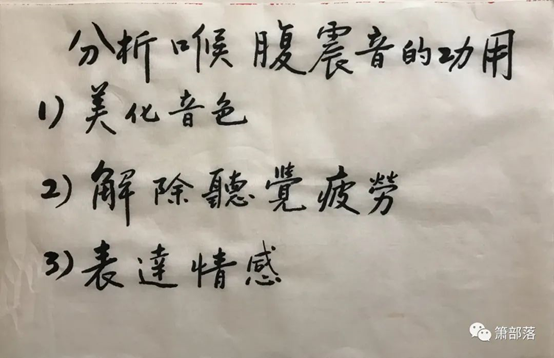 分析喉腹震音的功用
1)美化音色
2)解除聽覺疲勞
3)表達情感
箫部落